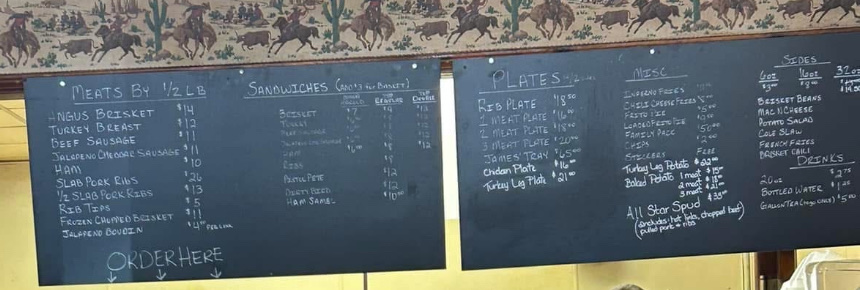 MEATS BY 1/2 LB
ANGUS BRISKET $14
TURKEY BREAST $12
BEEF SAUSAGE $11
JALAPENO CHEDDAR SAUSAGE $11
HAM $10
SLAB PORK RIBS $26
1/2 SLAB PORK RIBS $13
RIB TIPS $5
FROZEN CHOPPED BRISKET $11
JALAPENO BOUDIN $4 PER LINK
ORDER HERE
SANDWICHES
REGULAR
DOUBLE
BRISKET
TURKEY
HAM
RIBS
PISTOL PETE 12
DIRTY BIRD 12
HAM SAMEL $10
PLATES
RIB PLATE $18.50
1 MEAT PLATE $16
2 MEAT PLATE $18
3 MEAT PLATE $20
JAMES' TRAY $65
Chicken Plate $16
Turkey Leg Plate $21.00
MISC
INFERNO FRIES
CHILI CHEESE FRIES
FRITO PIE $5
LOADED FRITO PIE
FAMILY PACK $50
CHIPS
STICKERS FREE
Turkey Leg Potato $22.00
Baked Potato 1 meat $15
2 meat $18
3 meat $21
All Star Spud $35
(includes: hot links, chopped beef
pulled pork + ribs)
SIDES
6oz 16oz 32oz
BRISKET BEANS
MAC N CHEESE
POTATO SALAD
COLE SLAW
FRENCH FRIES
BRISKET CHILI
DRINKS
20oz $2.75
BOTTLED WATER $1.25
GALLON TEA $5